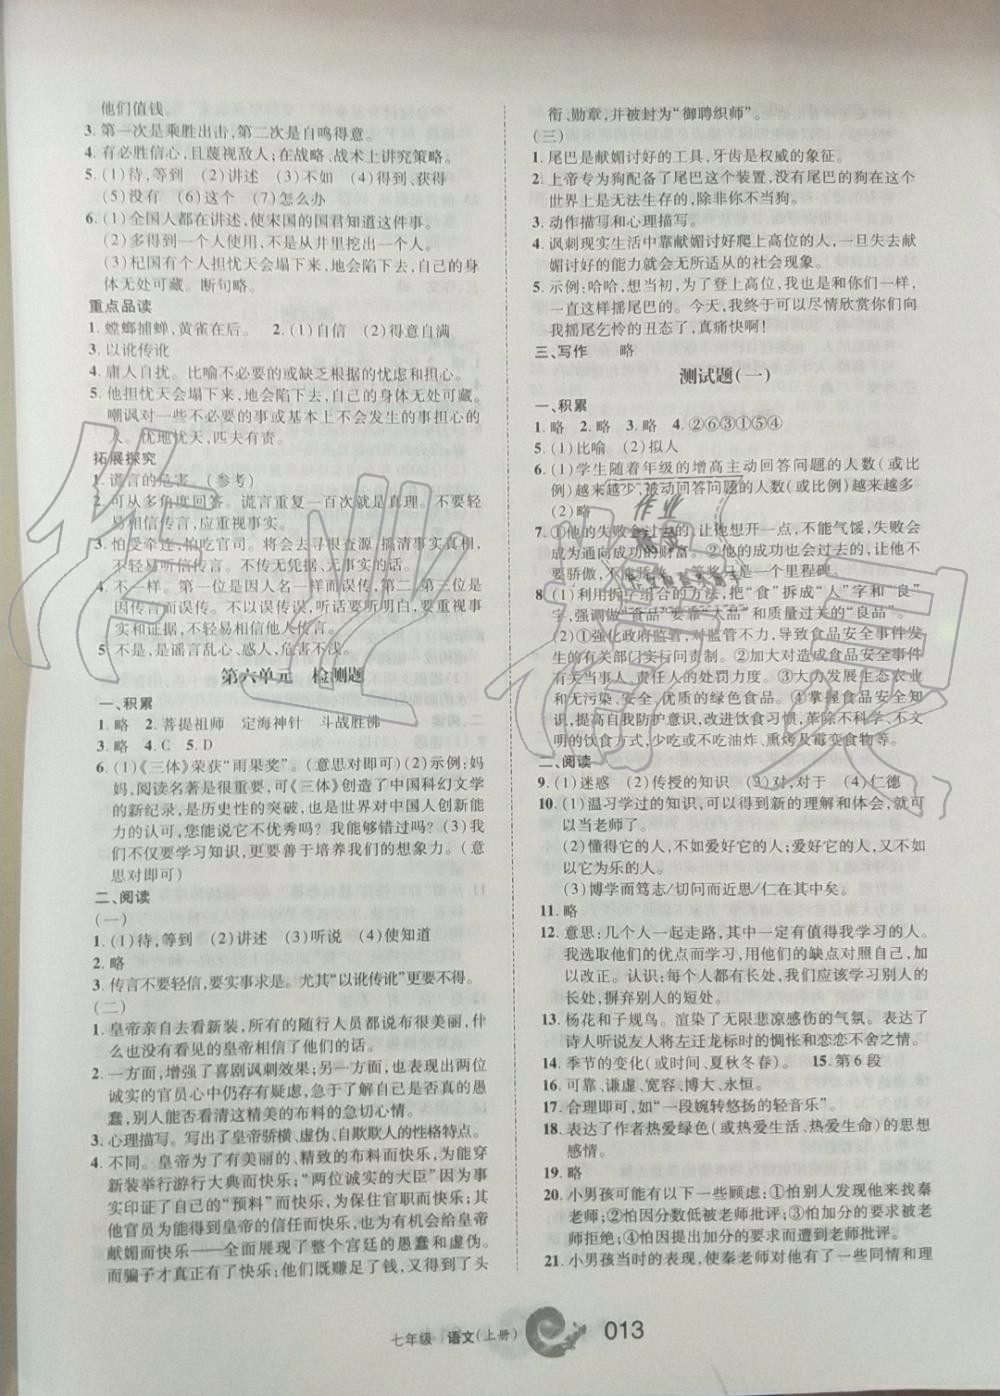 他们值钱。
3. 第一次是乘胜出击,第二次是自鸣得意。
4. 有必胜信心,且蔑视敌人;在战略、战术上讲究策略。
5. (1)待,等到 (2)讲述 (3)不如 (4)得到、获得
(5)没有 (6)这个 (7)怎么办
6. (1)全国人都在讲述,使宋国的国君知道这件事。
(2)多得到一个人使用,不是从井里挖出一个人。
(3)杞国有个人担忧天会塌下来,地会陷下去,自己的身体无处可藏。断句略。
重点品读
1. 螳螂捕蝉,黄雀在后。 2. (1)自信 (2)得意自满
3. 以讹传讹
4. 庸人自扰。比喻不必要的或缺乏根据的忧虑和担心。
5. 他担忧天会塌下来,地会陷下去,自己的身体无处可藏。
嘲讽对一些不必要的事或基本上不会发生的事担心的
人。忧地忧天,匹夫有责。
拓展探究
1. 谎言的危害。(参考)
2. 可从多角度回答。谎言重复一百次就是真理。不要轻
易相信传言,应重视事实。
3. 怕受牵连,怕吃官司。将会去寻根查源,搞清事实真相。
不轻易听信传言。不传谣,不信谣。
4. 不一样。第一位是因人名一样而误传。第二、第三位是
因传言而误传。不要误传、误听,听话要听明白,要重事
实和证据,不轻易相信他人传言。
5. 不是,是谣言乱心、惑人,危害不浅。
第六单元 检测题
一、积累
1. 略 2. 菩提祖师 定海神针 斗战胜佛
3. 略 4. C 5. D
6. (1)《三体》荣获“雨果奖”。(意思对即可)(2)示例:妈
妈,阅读名著是很重要,可《三体》创造了中国科幻文学
的新纪录,是历史性的突破,也是世界对中国人创新能
力的认可,您能说它不优秀吗?我能够错过吗?(3)我
们不仅要学习知识,更要善于培养我们的想象力。(意
思对即可)
二、阅读
(一)
1. (1)待,等到 (2)讲述 (3)听说 (4)使知道
2. 略
3. 传言不要轻信,要实事求是。尤其“以讹传讹”更要不得。
(二)
1. 皇帝亲自去看新装,所有的随行人员都说布很美丽,什
么也没有看见的皇帝相信了他们的话。
2. 一方面,增强了喜剧讽刺效果;另一方面,也表现出两位
诚实的官员心中仍存有疑虑,急于了解自己是否真的愚
蠢,别人能否看清这精美的布料的急切心情。
3. 心理描写。写出了皇帝骄横、虚伪、自欺欺人的性格特点。
4. 不同。皇帝为了有美丽的、精致的布料而快乐,能够穿
新装举行游行大典而快乐;“两位诚实的大臣”因为事
实印证了自己的“预料”而快乐,为保住官职而快乐;其
他官员为能得到皇帝的信任而快乐,也为有机会给皇帝
献媚而快乐——全面展现了整个宫廷的愚蠢和虚伪。
而骗子才真正有了快乐;他们既赚足了钱,又得到了头
衔、勋章,并被封为“御聘织师”。
(三)
1. 尾巴是献媚讨好的工具,牙齿是权威的象征。
2. 上帝专为狗配备了尾巴这个装置,没有尾巴的狗在这个
世界上是无法生存的,除非你不当狗。
3. 动作描写和心理描写。
4. 讽刺现实生活中靠献媚讨好爬上高位的人,一旦失去献
媚讨好的能力就会无所适从的社会现象。
5. 示例:哈哈,想想你们,为了登上高位,我们也像你们一样,
一直这样摇尾巴的。今天,我终于可以尽情欣赏你们向
我摇尾乞怜的丑态了,真痛快啊!
三、写作 略
测试题(一)
一、积累
1. 略 2. 略 3. 略 4. ②⑥③①⑤④
5. (1)比喻 (2)拟人
6. (1)学生随着年级的增高主动回答问题的人数(或比
例)越来越少,被动回答问题的人数(或比例)越来越多
(2)略
7. ①他的失败会过去的,让他想开一点,不能气馁,失败会
成为通向成功的财富。②他的成功也会过去的,让他不要
骄傲,不能骄傲。一等奖只是一个里程碑。
8. (1)利用拆字组合的方法,把“食”拆成“人”字和“良”
字,强调做“食品”要靠“人品”和质量过关的“良品”。
(2)①强化政府监管,对监管不力,导致食品安全事件发
生的有关部门实行问责制。②加大对造成食品安全事件
有关当事人、责任人的处罚力度。③大力发展生态农业
和无污染、安全、优质的绿色食品。④掌握食品安全知
识,提高自我防护意识,改变饮食习惯,革除不科学、不文
明的饮食方式,少吃或不吃油炸、熏烤及霉变食物等。
二、阅读
9. (1)迷惑 (2)传授的知识 (3)对,对于 (4)仁德
10. (1)温习学过的知识,可以得到新的理解和体会,就可
以当老师了。
(2)懂得它的人,不如爱好它的人;爱好它的人,又不如
以它为乐的人。
(3)博学而笃志/切问而近思/仁在其中矣。
11. 略
12. 意思:几个人一起走路,其中一定有值得我学习的人。
我选取他们的优点而学习,用他们的缺点对照自己,加
以改正。认识:每个人都有长处,我们应该学习别人的
长处,摒弃别人的短处。
13. 杨花和子规鸟。渲染了无限悲凉感伤的气氛。表达了
诗人听说友人将左迁龙标时的惆怅和恋恋不舍之情。
14. 季节的变化(或时间、夏秋冬春)。 15. 第6段
16. 可靠、谦虚、宽容、博大、永恒。
17. 合理即可,如“一段婉转悠扬的轻音乐”。
18. 表达了作者热爱绿色(或热爱生活、热爱生命)的思想
感情。
19. 略
20. 小男孩可能有以下一些顾虑:①怕别人发现他来找秦
老师;②怕因分数低被老师批评;③怕加分的要求被老
师拒绝;④怕因加分的要求而遭到老师批评。
21. 小男孩当时的表现,使秦老师对他有了一些同情和理
七年级 语文(上册)
013